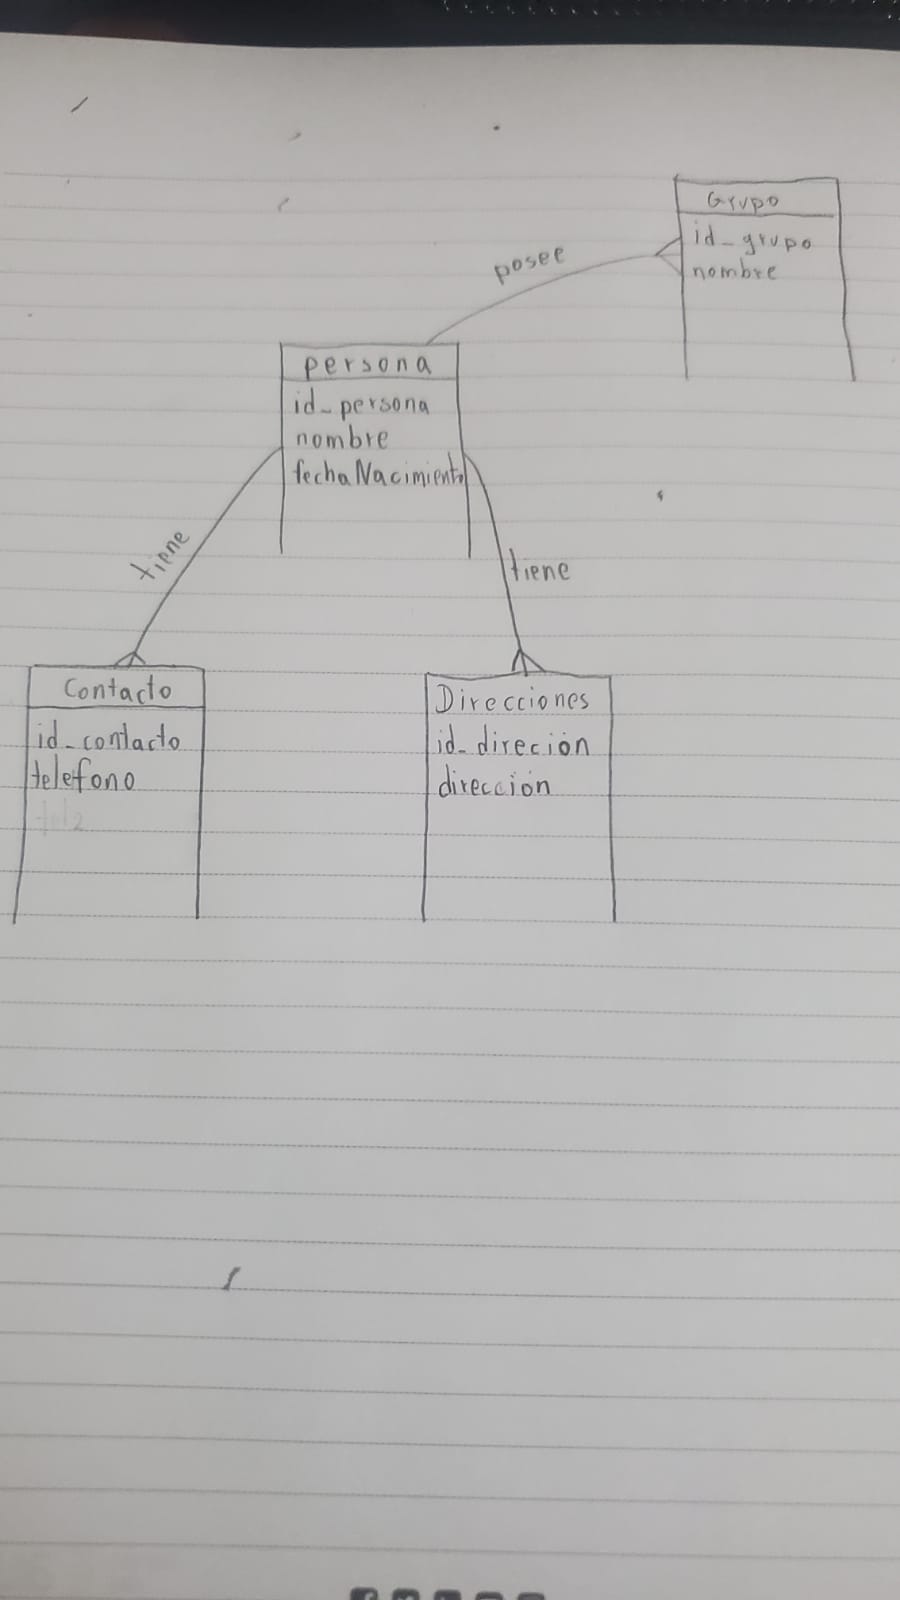 Grupo
id_grupo
nombre
posee
persona
id_persona
nombre
fechaNacimiento
tiene
tiene
Contacto
id_contacto
telefono
Direcciones
id_direción
dirección